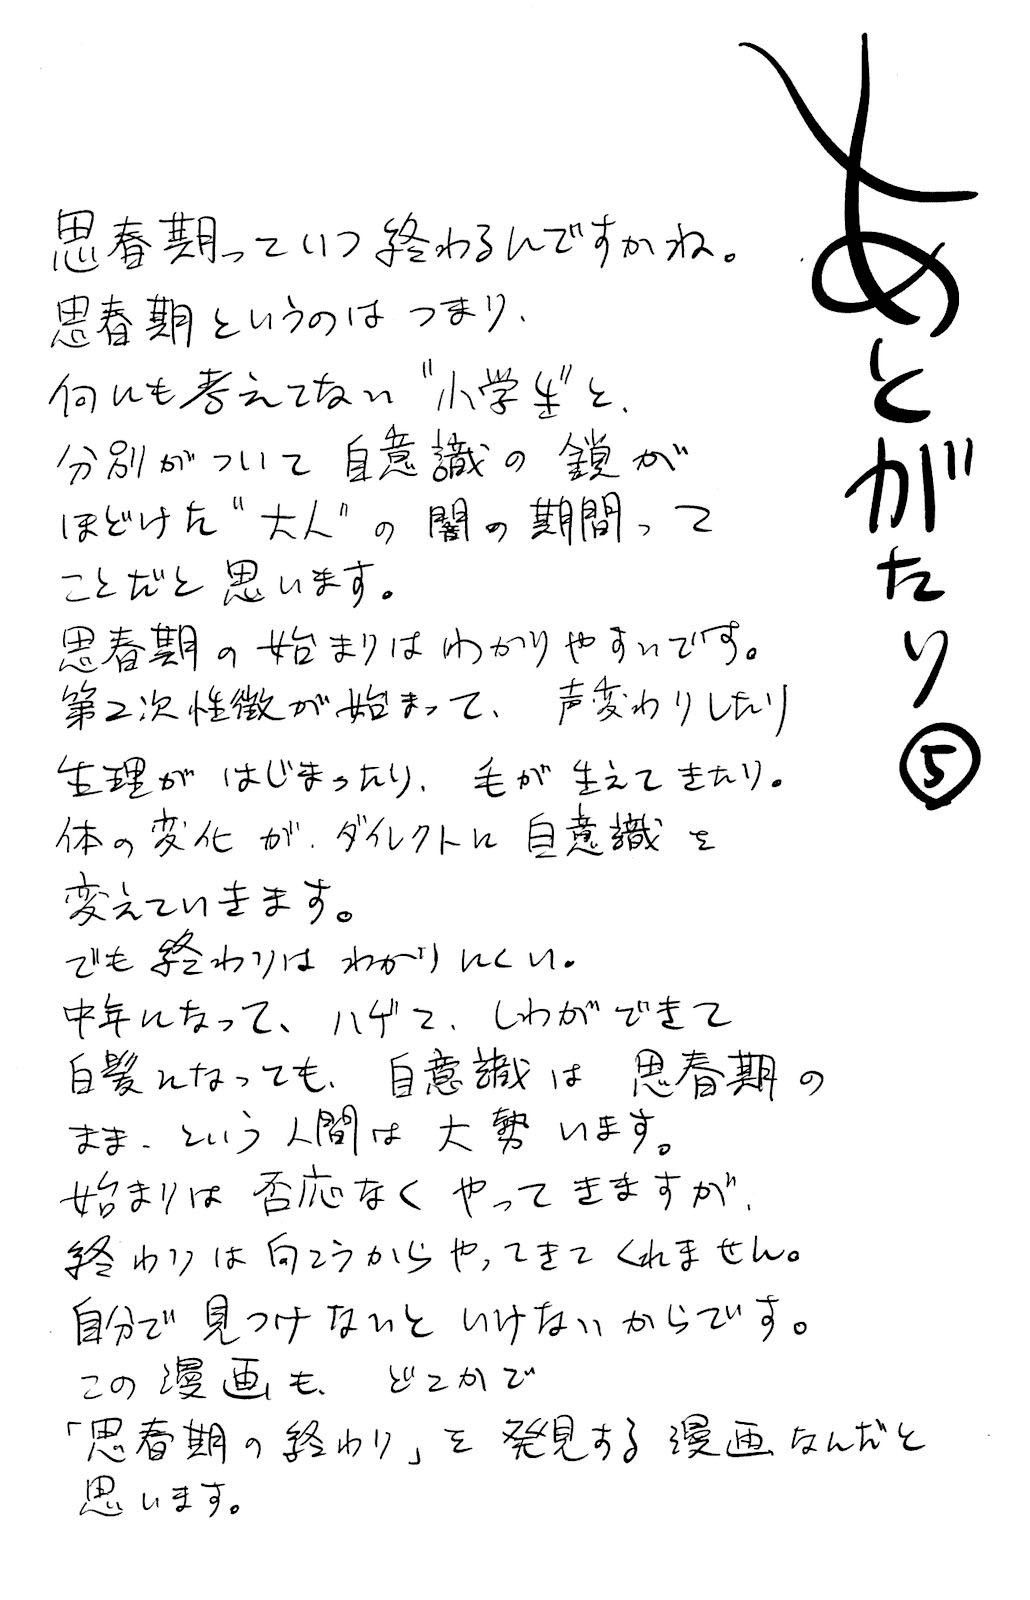 あとがたり⑤
思春期っていつ終わるんですかね。
思春期というのは つまり、
何にも考えてない“小学生”と、
分別がついて 自意識の 鎖が
ほどけた“大人”の 闇の期間って
ことだと 思います。
思春期の 始まりは わかりやすいです。
第2次性徴が始まって、 声変わりしたり
生理が はじまったり、 毛が 生えてきたり。
体の変化が、ダイレクトに 自意識を
変えていきます。
でも 終わりは わかりにくい。
中年になって、ハゲて、しわができて
白髪になっても、 自意識は 思春期の
まま、という人間は 大勢います。
始まりは 否応なく やってきますが、
終わりは 向こうからやってきてくれません。
自分で 見つけないと いけないからです。
この漫画も、 どこかで
「思春期の終わり」を 発見する 漫画なんだと
思います。